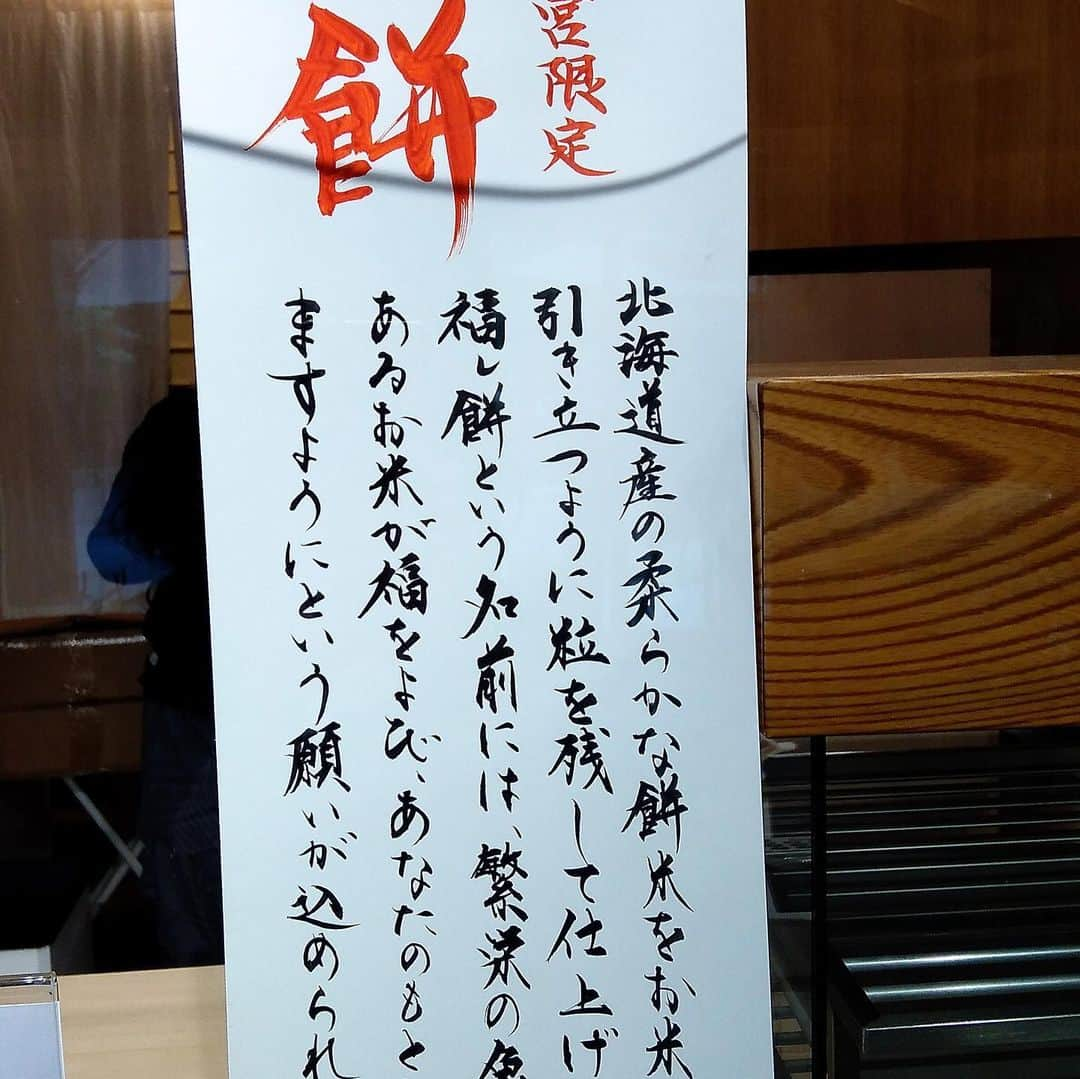 宮限定
餅
北海道産の柔らかな餅米をお米
引き立つように粒を残して仕上げ
福し餅という名前には、繁栄の
あるお米が福をよび、あなたのもと
ますようにという願いが込められ